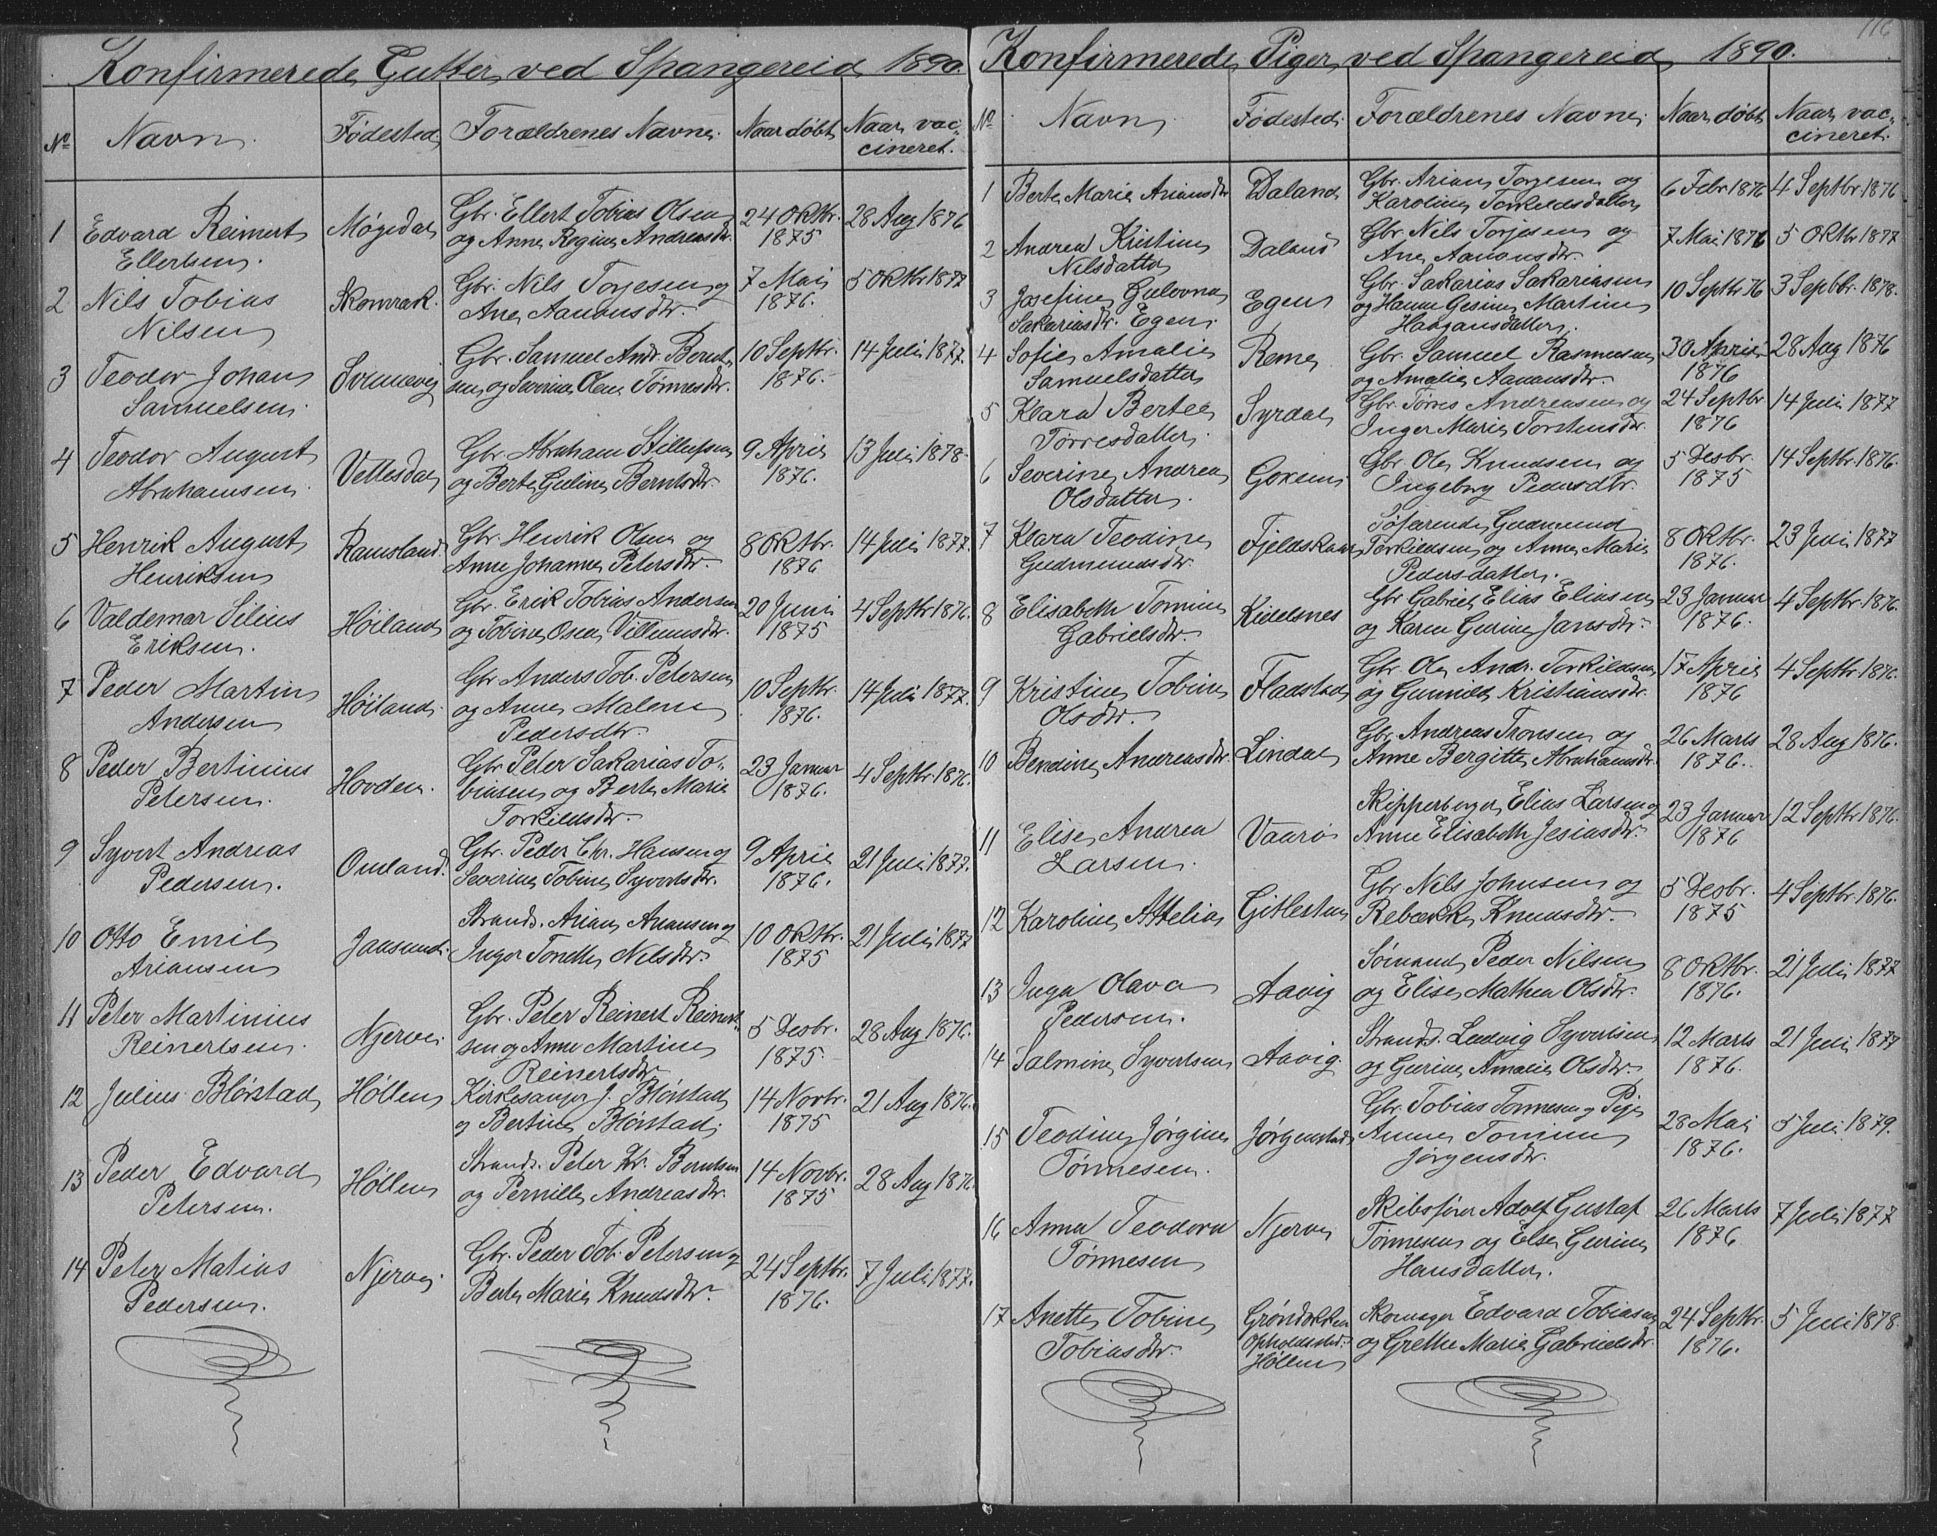 116
Konfirmerede Gutter ved Spangereid 1890.
No Navn. Fødested. Forældrenes Navne. Naar døbt Naar vac-
cineret.
1 Edvard Reinert
Ellertsen. Møgedal Gbr. Ellert Tobias Olsen
og Anne Regine Andreasdtr. 24 Oktbr.
1875 28 Aug 1876
2 Nils Tobias
Nilsen Skomrak. Gbr. Nils Torjesen og
Ane Aanonsdtr. 7 Mai
1876. 5 Oktbr 1877
3 Teodor Johan
Samuelsen. Svennevig Gbr. Samuel Andr. Bernt-
sen og Severine Oline Tønnesdtr. 10 Septbr.
1876. 14 Juli 1877.
4 Teodor August
Abrahamsen. Vettesdal Gbr. Abraham
og Berte Guline Berntsdtr. 9 April
1876. 13 Juli 1878.
5 Henrik August
Henriksen Ramsland Gbr. Henrik Olsen og
Anne Johanne Petersdtr. 8 Oktbr.
1876 14 Juli 1877.
6 Valdemar Silius
Eriksen. Høiland Gbr. Erik Tobias Andersen
og Tobine Osea Villumsdtr. 20 Juni
1875 4 Septbr 1876.
7 Peder Martin
Andersen Høiland. Gbr Anders Tob. Petersen
og Anne Malene
Pedersdtr. 10 Septbr.
1876. 14 Juli 1877.
8 Peder Bertinius
Petersen. Hovden. Gbr Peter Sakarias To-
biasen og Berte Marie
Torkildsdtr. 23 Januar
1876. 4 Septbr 1876.
9 Syvert Andreas
Pedersen. Omland. Gbr. Peder Chr. Hansen og
Severine Tobine Syvertsdtr. 9 April
1876. 21 Juli 1877.
10 Otto Emil
Ariansen Jaasund. Strands. Arian Aanensen og
Inger Tonette Nilsdtr. 10 Oktbr.
1875 21 Juli 1877
11 Peter Martinius
Reinertsen. Njerve. Gbr. Peter Reinert Reinert-
sen og Anne Martine
Reinertsdtr. 5 Desbr.
1875. 28 Aug 1876.
12 Julius Blörstad Höllen Kirkesanger J. Blörstad
og Bertine Blörstad. 14 Novbr.
1875 21 Aug 1876.
13 Peder Edvard
Petersen. Höllen Strands. Peter Kr. Berntsen
og Pernille Andreasdtr. 14 Novbr.
1875 28 Aug 1876.
14 Peter Matias
Pedersen. Njerve. Gbr. Peder Tob. Petersen og
Berte Marie Knudsdtr. 24 Septbr.
1876. 7 Juli 1877.
Konfirmerede Piger ved Spangereid 1890.
No Navn Fødested. Forældrenes Navne. Naar døbt Naar vac-
cineret.
1 Berte Marie Ariansdtr Daland Gbr. Arian Torjesen og
Karoline Torkildsdatter 6 Febr 1876 4 Septbr 1876
2 Andrea Kristine
Nilsdatter Daland Gbr. Nils Torjesen og
Ane Aanonsdtr. 7 Mai 1876 5 Oktbr 1877
3 Josefine Gulovna
Sakariasdtr. Egen. Egen Gbr. Sakarias Sakariassen
og Hanne Gesine Martine
Haagansdatter. 10 Septbr 76 3 Septbr. 1878.
4 Sofie Amalie
Samuelsdatter Reme Gbr. Samuel Rasmussen
og Amalie Aanonsdtr. 30 April
1876 28 Aug 1876
5 Klara Bertee
Tørresdatter. Syrdal Gbr. Tørres Andreassen og
Inger Marie Torstensdtr. 24 Septbr
1876 14 Juli 1877
6 Severine Andrea
Olsdatter. Gbr Ole Knudsen og
Ingeborg Pedersdtr. 5 Desbr.
1875 14 Septbr 1876.
7 Klara Teodine
Gudmundsdtr. Fjeldskaar Søfarende Gudmund
Torkildsen og Anne Marie
Pedersdatter. 8 Oktbr.
1876. 23 Juli 1877
8 Elisabeth Tomine
Gabrielsdtr. Kidelsnes Gbr Gabriel Elias Eliasen
og Karen Gurine Jansdtr. 23 Januar
1876. 4 Septbr 1876.
9 Kristine Tobine
Olsdtr. Fladstad Gbr. Ole Andr. Torkildsen
og Gunnild Kristiansdtr. 17 April
1876 4 Septbr 1876.
10 Bendine Andreasdtr. Lindal Gbr. Andreas Tronsen og
Anne Bergitte Abrahamsdtr. 26 Marts
1876. 28 Aug 1876.
11 Elise Andrea
Larsen. Vaarø Skipperborger Elias Larsen og
Anne Elisabeth Jesiasdtr. 23 Januar
1876 12 Septbr 1876.
12 Karoline Attelia Gitlestun Gbr Nils Johnsen og
Rebække Knudsdtr. 5 Desbr.
1875 4 Septbr 1876.
13 Inga Olava
Pedersen. Aavig Sømand Peder Nilsen
og Elise Mathea Olsdtr. 8 Oktbr.
1876. 21 Juli 1877
14 Salmine Syvertsen Aavig. Strands. Ludvig Syvertsen
og Gurine Amalie Olsdtr. 12 Marts
1876. 21 Juli 1877
15 Teodine Jørgine
Tønnesen. Jørgenstad Gbr. Tobias Tønnesen og Pige
Anne Tomine
Jørgensdtr. 28 Mai
1876. 5 Juli 1879.
16 Anna Teodora
Tønnesen Njerve Skibsfører Adolf Gustaf
Tønnesen og Else Gurine
Hansdatter. 26 Marts
1876 7 Juli 1877
17 Anette Tobine
Tobiasdtr. Grøndokken
Opholdssted:
Höllen Skomager Edvard Tobiasen
og Grethe Marie Gabrielsdtr. 24 Septbr.
1876. 5 Juli 1878.